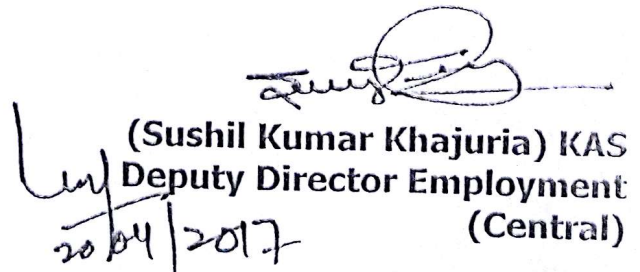 (Sushil Kumar Khajuria) KAS
Deputy Director Employment
(Central)
20/04/2017